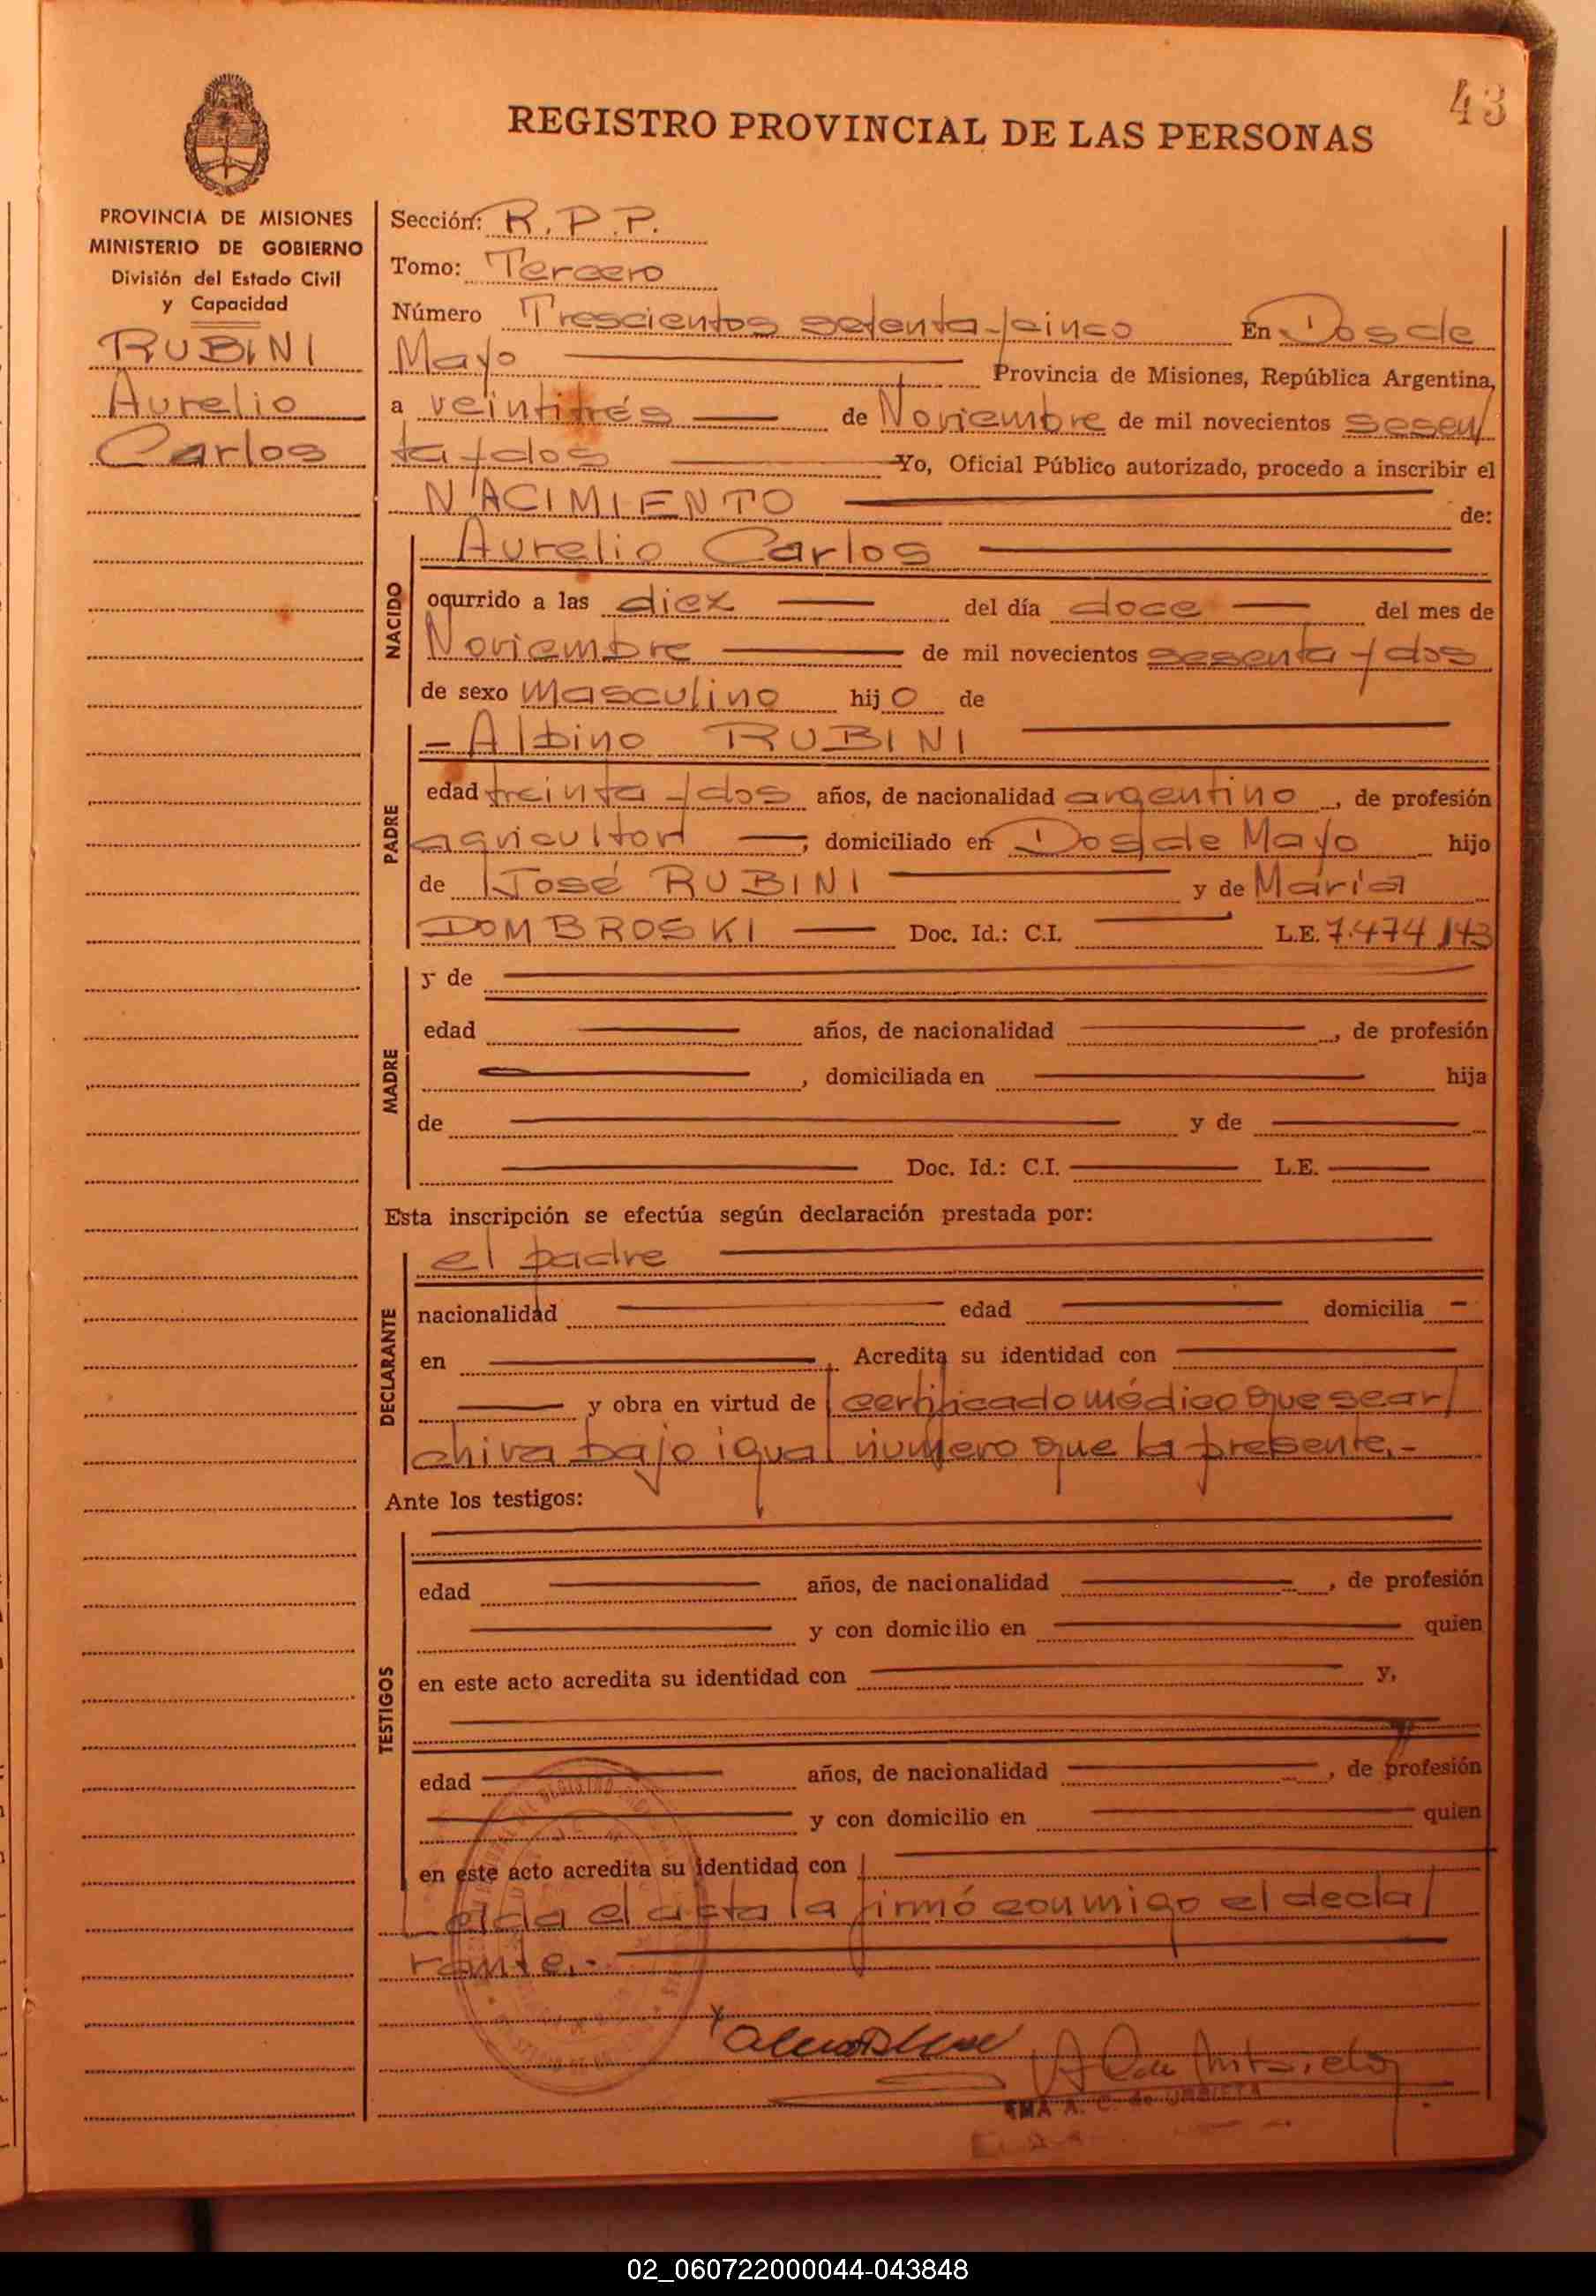 43
REGISTRO PROVINCIAL DE LAS PERSONAS
PROVINCIA DE MISIONES
MINISTERIO DE GOBIERNO
División del Estado Civil
y Capacidad
RUBINI
Aurelio
Carlos
Sección: R.P.P.
Tomo: Tercero
Número Trescientos setenta y cinco En Dos de
Mayo Provincia de Misiones, República Argentina,
a veintitrés de Noviembre de mil novecientos sesen/
ta y dos Yo, Oficial Público autorizado, procedo a inscribir el
NACIMIENTO de:
NACIDO
Aurelio Carlos
ocurrido a las diez del día doce del mes de
Noviembre de mil novecientos sesenta y dos
de sexo Masculino hijo de
PADRE
- Albino RUBINI
edad treinta y dos años, de nacionalidad argentino, de profesión
agricultor, domiciliado en Dos de Mayo hijo
de José RUBINI y de María
DOMBROSKI Doc. Id.: C.I. L.E. 7.474.143
MADRE
y de
edad años, de nacionalidad , de profesión
, domiciliada en hija
de y de
Doc. Id.: C.I. L.E.
Esta inscripción se efectúa según declaración prestada por:
DECLARANTE
el padre
nacionalidad edad domicilia
en . Acredita su identidad con
y obra en virtud de certificado médico que se ar/
chiva bajo igual número que la presente.-
Ante los testigos:
TESTIGOS
edad años, de nacionalidad , de profesión
y con domicilio en quien
en este acto acredita su identidad con y,
edad años, de nacionalidad , de profesión
y con domicilio en quien
en este acto acredita su identidad con
Leída el acta la firmó conmigo el decla/
rante.-
02_060722000044-043848